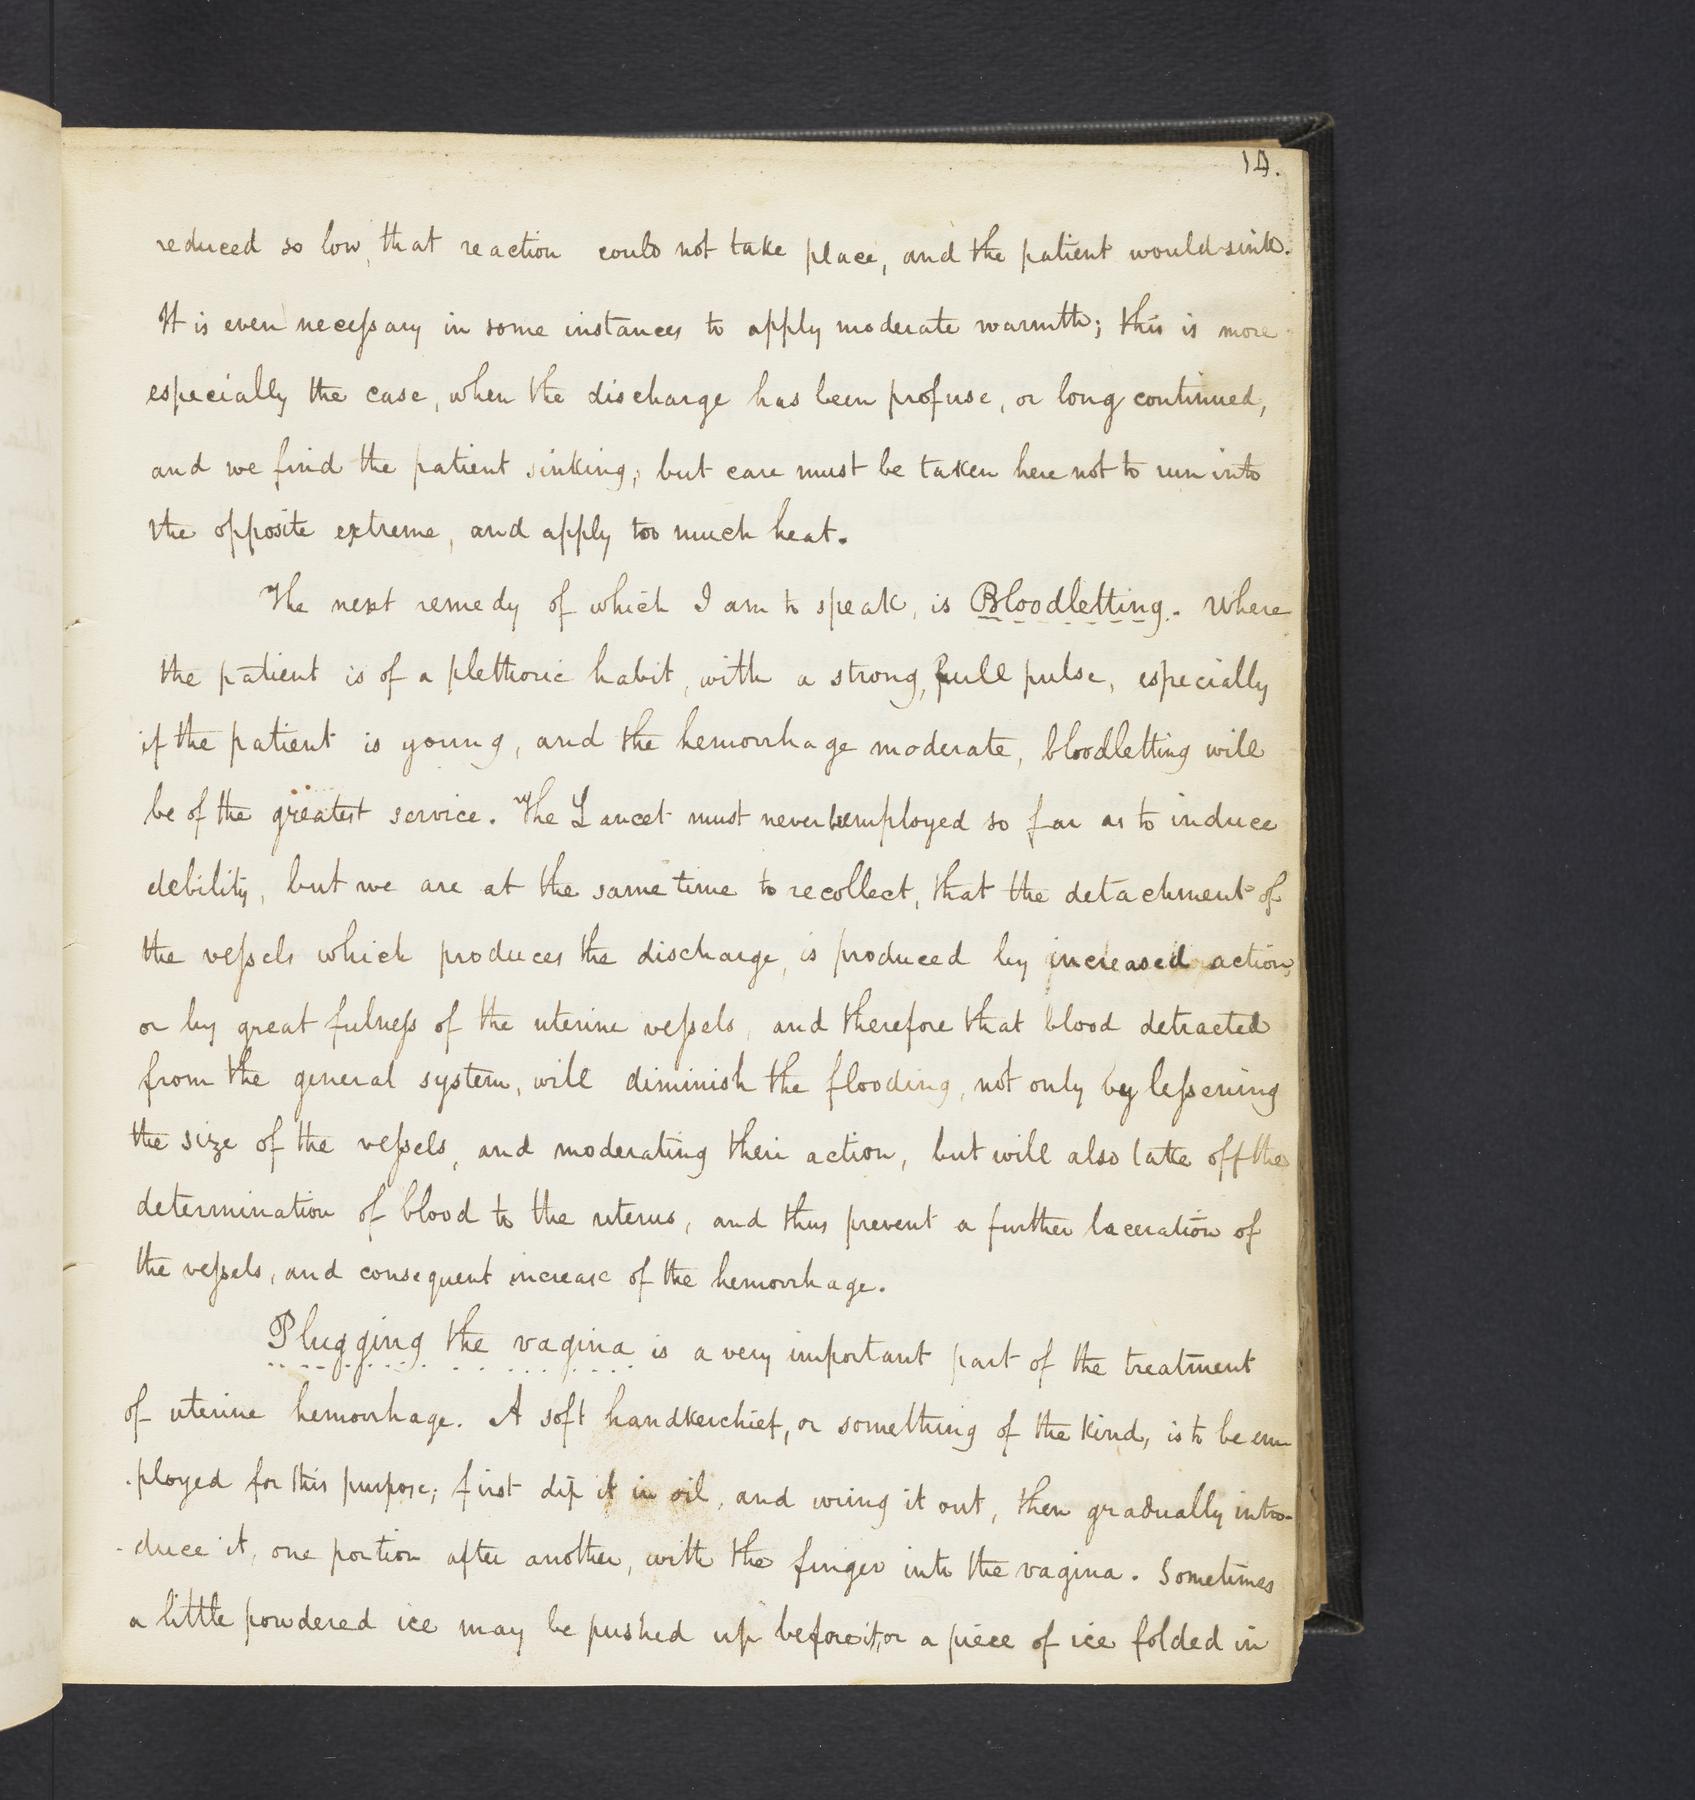 14.
reduced so low, that reaction could not take place, and the patient would sink.
It is even necessary in some instances to apply moderate warmth; this is more
especially the case, when the discharge has been profuse, or long continued,
and we find the patient sinking; but care must be taken here not to run into
the opposite extreme, and apply too much heat.
The next remedy of which I am to speak, is Bloodletting. Where
the patient is of a plethoric habit, with a strong, full pulse, especially
if the patient is young, and the hemorrhage moderate, bloodletting will
be of the greatest service. The Lancet must never be employed so far as to induce
debility, but we are at the same time to recollect, that the detachment of
the vessels which produces the discharge, is produced by increased action,
or by great fulness of the uterine vessels, and therefore that blood detracted
from the general system, will diminish the flooding, not only by lessening
the size of the vessels, and moderating their action, but will also take off the
determination of blood to the uterus, and thus prevent a further laceration of
the vessels, and consequent increase of the hemorrhage.
Plugging the vagina is a very important part of the treatment
of uterine hemorrhage. A soft handkerchief, or something of the kind, is to be em
-ployed for this purpose; first dip it in oil, and wring it out, then gradually intro-
-duce it, one portion after another, with the finger into the vagina. Sometimes
a little powdered ice may be pushed up before it, or a piece of ice folded in